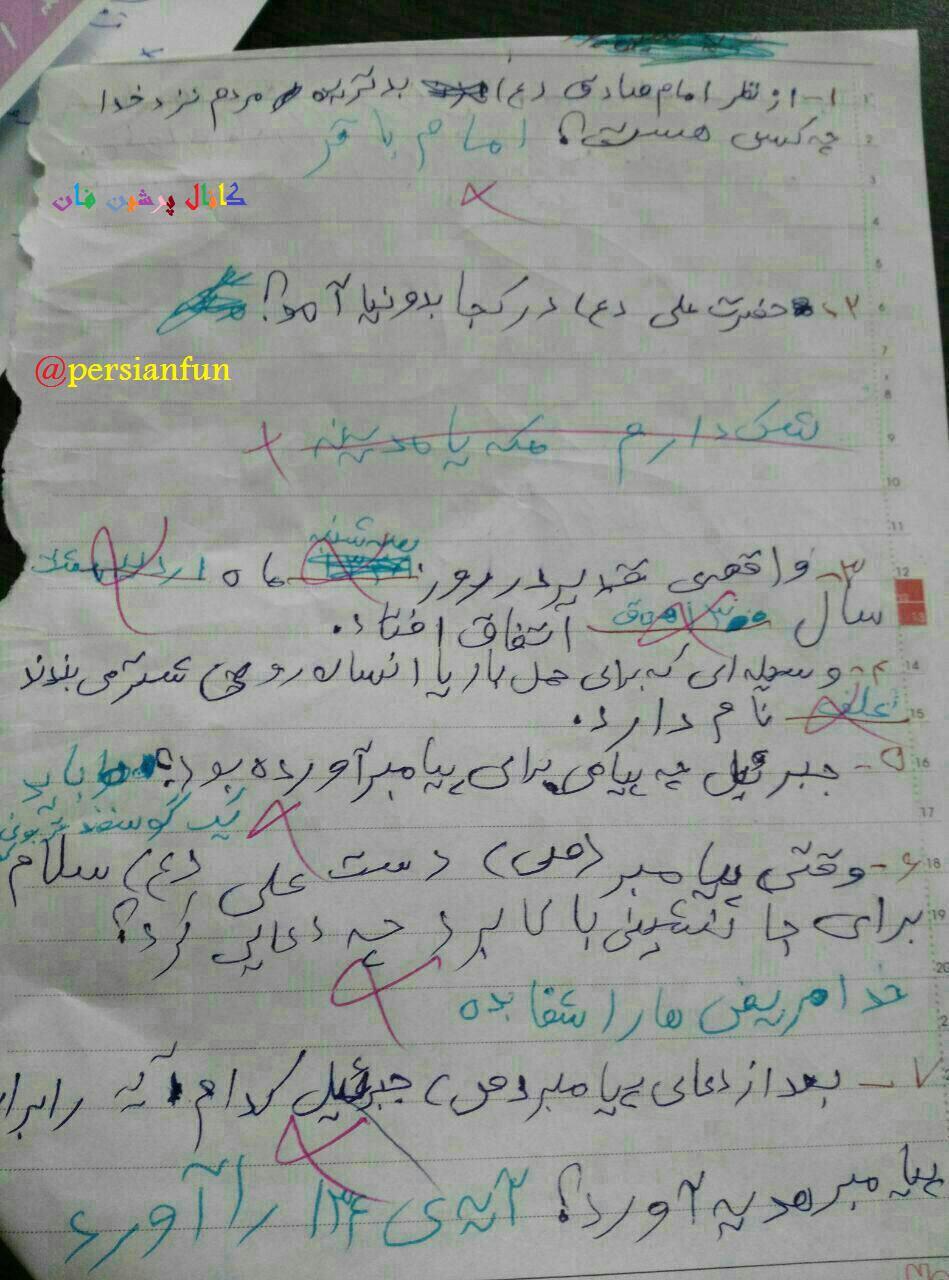 ۱- از نظر امام صادق (ع) بدترین مردم نزد خدا
چه کسی هست؟ امام باقر
کانال پرشین فان
۲- حضرت علی (ع) در کجا بدونیا آمد؟
@persianfun
شک دارم مکه یا مدینه
۳- واقعی غدیر در روز سه شنبه ماه
سال اتفاق افتاد.
۴- وسیله ای که برای حمل بار یا انسان روی شتر می بندند
علف نام دارد.
۵- جبرئیل چه پیامی برای پیامبر آورده بود؟ باید
یک گوسفند قربونی
۶- وقتی پیامبر (ص) دست علی (ع) سلام
برای جانشینی بالا برد چه دعایی کرد؟
خدا مریض ها را شفا بده
۷- بعد از دعای پیامبر (ص) جبرئیل کدام آیه را برای
پیامبر هدیه آورد؟ آیه ی ۱۳۴ را آورد